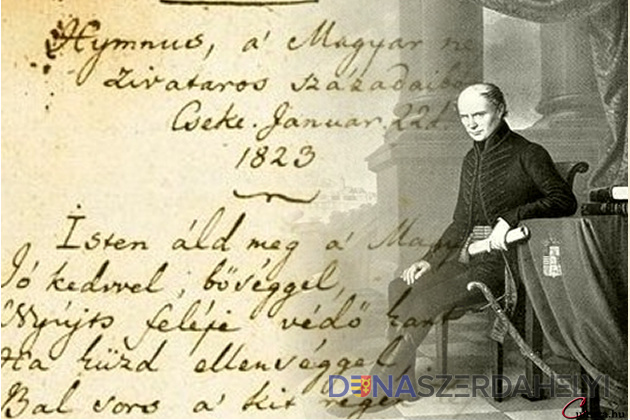 Hymnus, a' Magyar ne
zivataros századaibó
Cseke. Januar. 22d.
1823
Isten áld meg a' Magy
Jó kedvvel, bőséggel,
Nyújts feléje védő kart
Ha küzd ellenséggel
Bal sors a' kit rége
DUNASZERDAHELYI
.hu